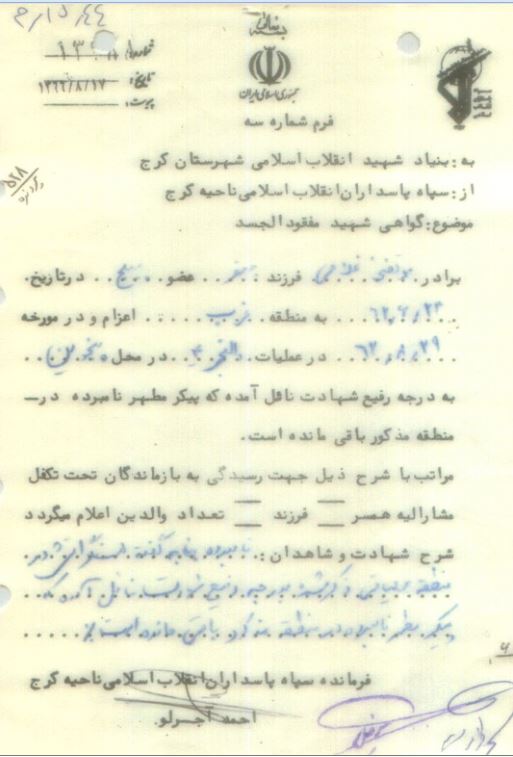 بسمه تعالی
شماره:
تاریخ: ۱۳۶۶/۸/۱۷
پیوست:
جمهوری اسلامی ایران
فرم شماره سه
به: بنیاد شهید انقلاب اسلامی شهرستان کرج
از: سپاه پاسداران انقلاب اسلامی ناحیه کرج
موضوع: گواهی شهید مفقودالجسد
برادر مرتضی غلامی فرزند عضو بسیج در تاریخ
۶۲/۶/۲۳ به منطقه غرب اعزام و در مورخه
۶۲/۸/۲۹ در عملیات والفجر ۴ در محل پنجوین
به درجه رفیع شهادت نائل آمده که پیکر مطهر نامبرده در
منطقه مذکور باقی مانده است.
مراتب با شرح ذیل جهت رسیدگی به بازماندگان تحت تکفل
مشارالیه همسر فرزند تعداد والدین اعلام میگردد
شرح شهادت و شاهدان: نامبرده بنا به گفته همسنگرانش در
منطقه عملیاتی به درجه رفیع شهادت نائل آمد که
پیکر مطهر نامبرده در منطقه مذکور باقی مانده است
فرمانده سپاه پاسداران انقلاب اسلامی ناحیه کرج
احمد آجرلو